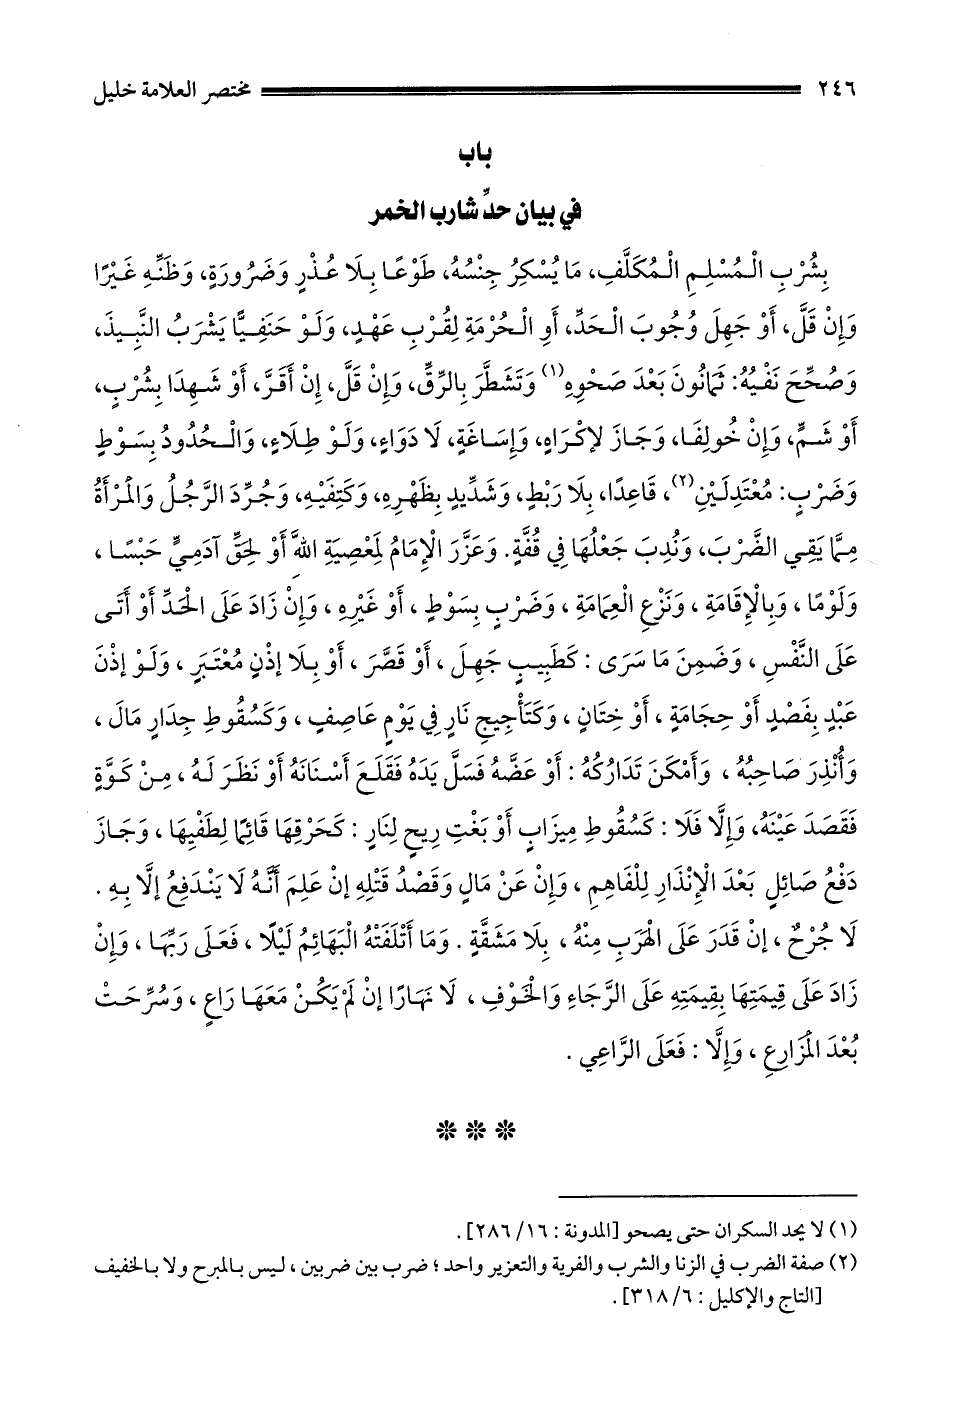 ٢٤٦ مختصر العلامة خليل
باب
في بيان حدِّ شارب الخمر
بِشُرْبِ الْمُسْلِمِ الْمُكَلَّفِ، مَا يُسْكِرُ جِنْسُهُ، طَوْعًا بِلَا عُذْرٍ وَضَرُورَةٍ، وَظَنِّهِ غَيْرًا
وَإِنْ قَلَّ، أَوْ جَهِلَ وُجُوبَ الْحَدِّ، أَوِ الْحُرْمَةِ لِقُرْبِ عَهْدٍ، وَلَوْ حَنَفِيًّا يَشْرَبُ النَّبِيذَ،
وَصُحِّحَ نَفْيُهُ: ثَمَانُونَ بَعْدَ صَحْوِهِ(١) وَتَشَطَّرَ بِالرِّقِّ، وَإِنْ قَلَّ، إِنْ أَقَرَّ، أَوْ شَهِدَا بِشُرْبٍ،
أَوْ شَمٍّ، وَإِنْ خُولِفَا، وَجَازَ لإِكْرَاهٍ، وَإِسَاغَةٍ، لَا دَوَاءٍ، وَلَوْ طِلَاءٍ، وَالْحُدُودُ بِسَوْطٍ
وَضَرْبٍ: مُعْتَدِلَيْنِ(٢)، قَاعِدًا، بِلَا رَبْطٍ، وَشَدِّيدٍ بِظَهْرِهِ، وَكَتِفَيْهِ، وَجُرِّدَ الرَّجُلُ وَالْمَرْأَةُ
مِمَّا يَقِي الضَّرْبَ، وَنُدِبَ جَعْلُهَا فِي قُفَّةٍ. وَعَزَّرَ الْإِمَامُ لِمَعْصِيَةِ اللهِ أَوْ لِحَقِّ آدَمِيٍّ حَبْسًا ،
وَلَوْمًا ، وَبِالْإِقَامَةِ ، وَنَزْعِ الْعِمَامَةِ ، وَضَرْبٍ بِسَوْطٍ ، أَوْ غَيْرِهِ ، وَإِنْ زَادَ عَلَى الْحَدِّ أَوْ أَتَى
عَلَى النَّفْسِ ، وَضَمِنَ مَا سَرَى : كَطَبِيبٍ جَهِلَ ، أَوْ قَصَّرَ ، أَوْ بِلَا إِذْنٍ مُعْتَبَرٍ ، وَلَوْ إِذْنَ
عَبْدٍ بِفَصْدٍ أَوْ حِجَامَةٍ ، أَوْ خِتَانٍ ، وَكَتَأْجِيجِ نَارٍ فِي يَوْمٍ عَاصِفٍ ، وَكَسُقُوطِ جِدَارٍ مَالَ ،
وَأُنْذِرَ صَاحِبُهُ ، وَأَمْكَنَ تَدَارُكُهُ : أَوْ عَضَّهُ فَسَلَّ يَدَهُ فَقَلَعَ أَسْنَانَهُ أَوْ نَظَرَ لَهُ ، مِنْ كَوَّةٍ
فَقَصَدَ عَيْنَهُ، وَإِلَّا فَلَا : كَسُقُوطِ مِيزَابٍ أَوْ بَغْتِ رِيحٍ لِنَارٍ : كَحَرْقِهَا قَائِمًا لِطَفْيِهَا ، وَجَازَ
دَفْعُ صَائِلٍ بَعْدَ الْإِنْذَارِ لِلْفَاهِمِ ، وَإِنْ عَنْ مَالٍ وَقَصْدُ قَتْلِهِ إِنْ عَلِمَ أَنَّهُ لَا يَنْدَفِعُ إِلَّا بِهِ .
لَا جُرْحٌ ، إِنْ قَدَرَ عَلَى الْهَرَبِ مِنْهُ ، بِلَا مَشَقَّةٍ . وَمَا أَتْلَفَتْهُ الْبَهَائِمُ لَيْلًا ، فَعَلَى رَبِّهَا ، وَإِنْ
زَادَ عَلَى قِيمَتِهَا بِقِيمَتِهِ عَلَى الرَّجَاءِ وَالْخَوْفِ ، لَا نَهَارًا إِنْ لَمْ يَكُنْ مَعَهَا رَاعٍ ، وَسُرِّحَتْ
بُعْدَ الْمَزَارِعِ ، وَإِلَّا : فَعَلَى الرَّاعِي .
❊ ❊ ❊
(١) لا يحد السكران حتى يصحو [المدونة : ١٦/ ٢٨٦].
(٢) صفة الضرب في الزنا والشرب والفرية والتعزير واحد ؛ ضرب بين ضربين ، ليس بالمبرح ولا بالخفيف
[التاج والإكليل : ٦/ ٣١٨].